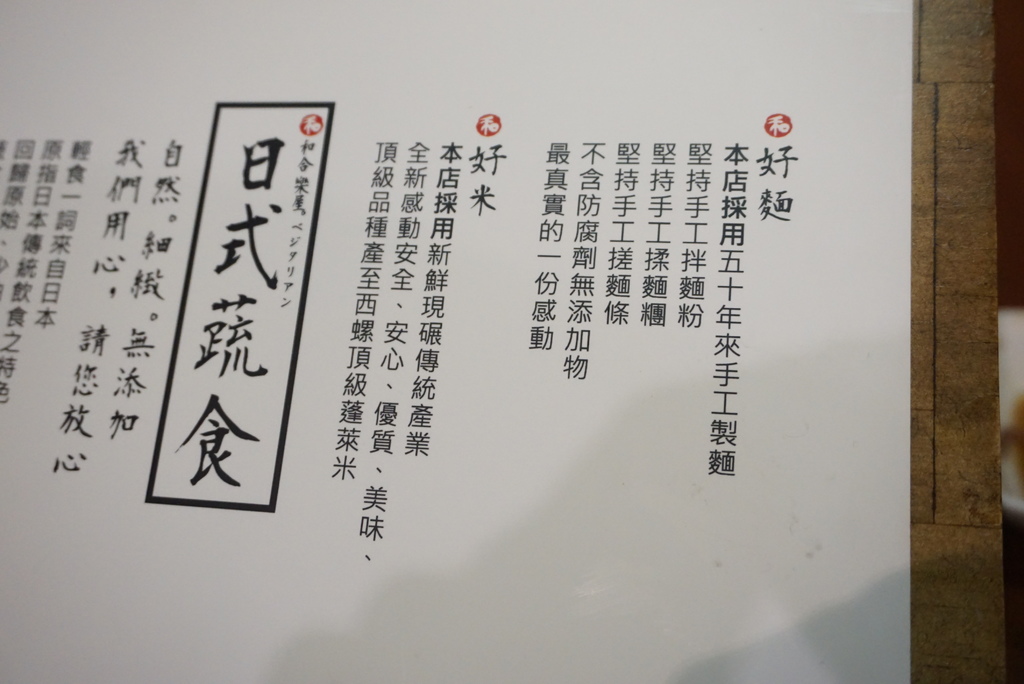 和
好麵
本店採用五十年來手工製麵
堅持手工拌麵粉
堅持手工揉麵糰
堅持手工搓麵條
不含防腐劑無添加物
最真實的一份感動
和
好米
本店採用新鮮現碾傳統產業
全新感動安全、安心、優質、美味、
頂級品種產至西螺頂級蓬萊米
和
和合樂屋。ベジタリアン
日式蔬食
自然。細緻。無添加
我們用心,請您放心
輕食一詞來自日本
原指日本傳統飲食之特色
回歸原始、少